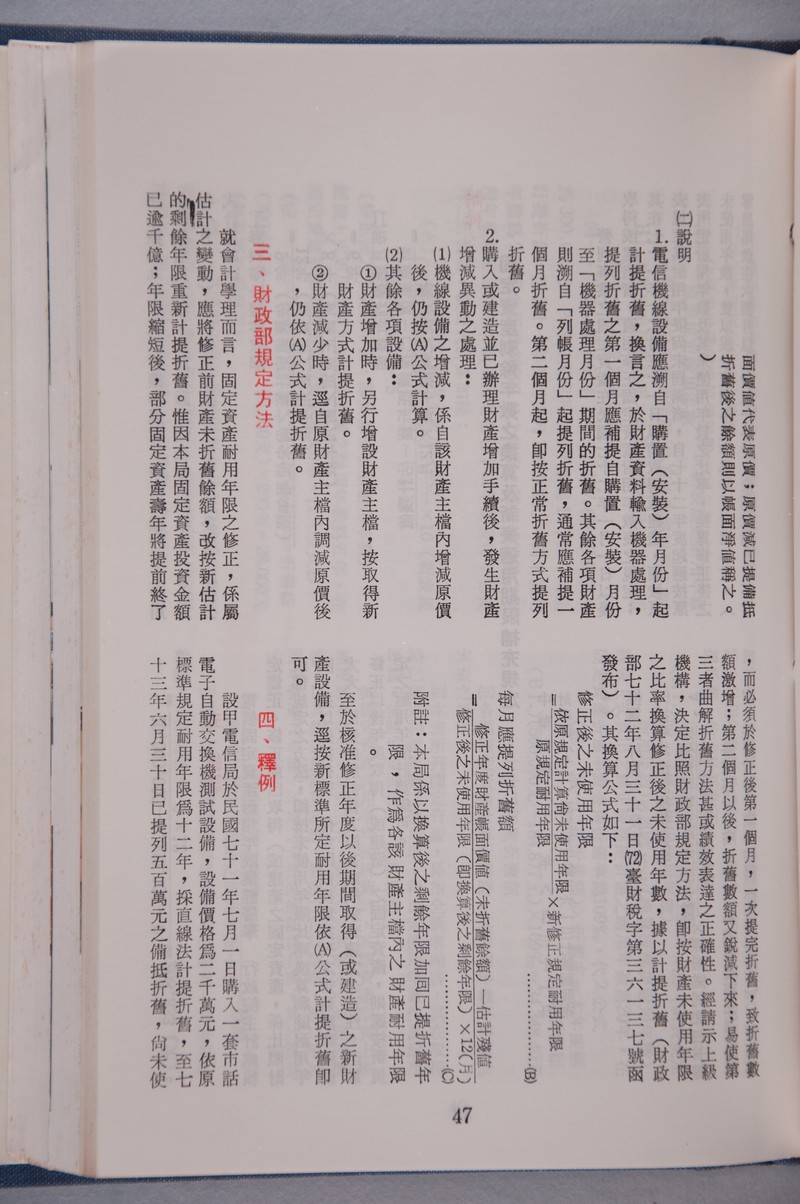 面價值代表原價；原價減已提備抵
折舊後之餘額則以帳面淨值稱之。
）
㈡說明
1.電信機線設備應溯自「購置（安裝）年月份」起
計提折舊，換言之，於財產資料輸入機器處理，
提列折舊之第一個月應補提自購置（安裝）月份
至「機器處理月份」期間的折舊。其餘各項財產
則溯自「列帳月份」起提列折舊，通常應補提一
個月折舊。第二個月起，卽按正常折舊方式提列
折舊。
2.購入或建造並已辦理財產增加手續後，發生財產
增減異動之處理：
⑴機線設備之增減，係自該財產主檔內增減原價
後，仍按(A)公式計算。
⑵其餘各項設備：
①財產增加時，另行增設財產主檔，按取得新
財產方式計提折舊。
②財產減少時，逕自原財產主檔內調減原價後
，仍依(A)公式計提折舊。
三、財政部規定方法
就會計學理而言，固定資產耐用年限之修正，係屬
估計之變動，應將修正前財產未折舊餘額，改按新估計
的剩餘年限重新計提折舊。惟因本局固定資產投資金額
已逾千億；年限縮短後，部分固定資產壽年將提前終了
，而必須於修正後第一個月，一次提完折舊，致折舊數
額激增；第二個月以後，折舊數額又銳減下來；易使第
三者曲解折舊方法甚或績效表達之正確性。經請示上級
機構，決定比照財政部規定方法，卽按財產未使用年限
之比率換算修正後之未使用年數，據以計提折舊（財政
部七十二年八月三十一日(72)臺財稅字第三六一三七號函
發布）。其換算公式如下：
修正後之未使用年限
＝依原規定計算尚未使用年限×新修正規定耐用年限
原規定耐用年限
……………………(B)
每月應提列折舊額
＝修正年度財產帳面價值（未折舊餘額）—估計殘值
修正後之未使用年限（卽換算後之剩餘年限）×12(月)
……………………(C)
附註：本局係以換算後之剩餘年限加同已提折舊年
限，作爲各該財產主檔內之財產耐用年限
。
至於核准修正年度以後期間取得（或建造）之新財
產設備，逕按新標準所定耐用年限依(A)公式計提折舊卽
可。
四、釋例
設甲電信局於民國七十一年七月一日購入一套市話
電子自動交換機測試設備，設備價格爲二千萬元，依原
標準規定耐用年限爲十二年，採直線法計提折舊，至七
十三年六月三十日已提列五百萬元之備抵折舊，尙未使
47